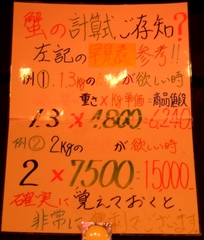 蟹の計算式ご存知?
左記の早見表参考!!
例① 1.3kgの が欲しい時
重さ×kg単価=商品値段
1.3×4,800=6,240
例② 2kgの が欲しい時
2×7,500=15,000
確実に覚えておくと、
非常に